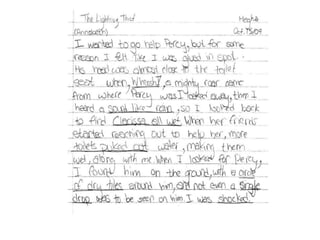 The Lightning Thief
(Annabeth)
I wanted to go help Percy, but for some
reason I felt like I was glued in spot.
His head was almost close to the toilet
seat when, Whoosh! a mighty roar came
from where Percy was. I looked away, then I
heard a sound like rain, so I looked back
to find Clarissa all wet. When her friends
started reaching out to help her, more
toilets puked out water, making them
wet, along with me. When I looked for Percy,
I found him on the ground, with a circle
of dry tiles around him, and not even a single
drop was to be seen on him. I was shocked.